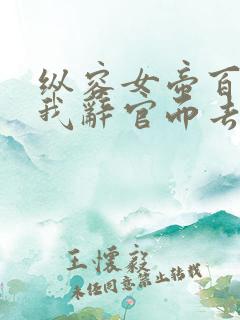 纵容女帝百
我辞官而去
王怀毅
未经同意禁止转载